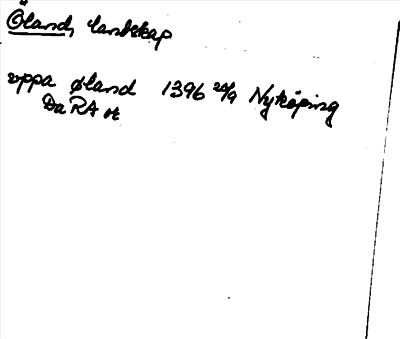 Öland, landskap
uppa øland 1396 24/9 Nyköping
DaRA or